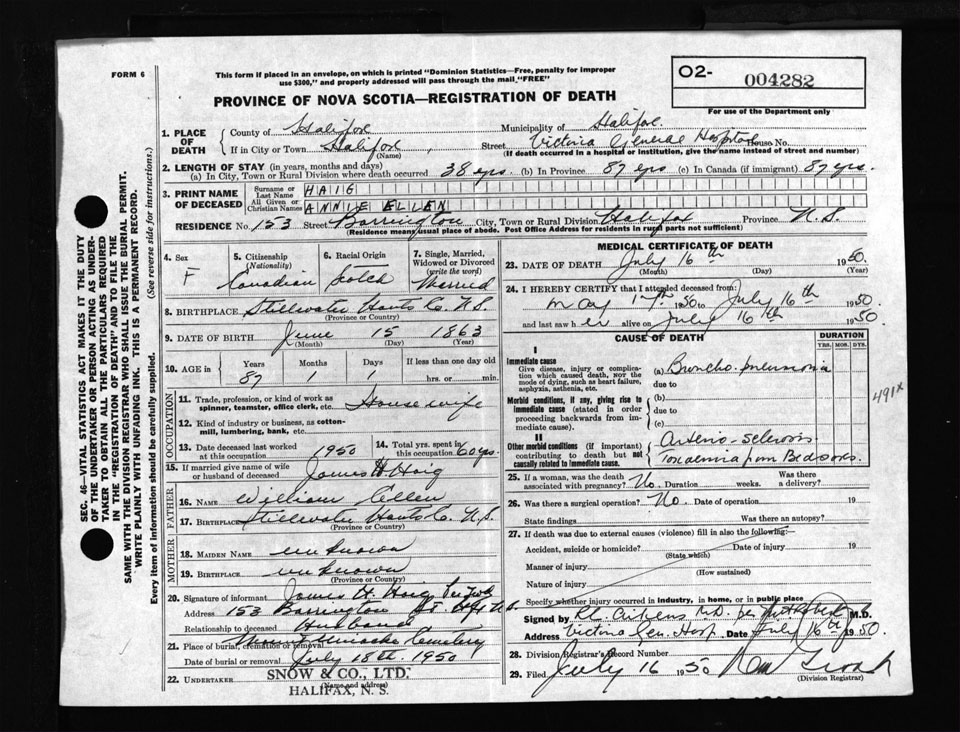 FORM 6
This form if placed in an envelope, on which is printed "Dominion Statistics—Free, penalty for improper
use $300," and properly addressed will pass through the mail "FREE"
O2- 004282
For use of the Department only
PROVINCE OF NOVA SCOTIA—REGISTRATION OF DEATH
1. PLACE OF DEATH County of Halifax Municipality of Halifax.
If in City or Town Halifax (Name) Street Victoria General Hospital House No.
(If death occurred in a hospital or institution, give the name instead of street and number)
2. LENGTH OF STAY (in years, months and days)
(a) In City, Town or Rural Division where death occurred 38 yrs. (b) In Province 87 yrs (c) In Canada (if immigrant) 87 yrs.
3. PRINT NAME OF DECEASED Surname or Last Name HAIG
All Given or Christian Names ANNIE ELLEN
RESIDENCE No. 153 Street Barrington City, Town or Rural Division Halifax Province N.S.
(Residence means usual place of abode. Post Office Address for residents in rural parts not sufficient)
4. Sex F
5. Citizenship (Nationality) Canadian
6. Racial Origin Scotch
7. Single, Married, Widowed or Divorced (write the word) Married
8. BIRTHPLACE Stillwater Hants Co. N.S.
(Province or Country)
9. DATE OF BIRTH June 15 1863
(Month) (Day) (Year)
10. AGE in Years 87 Months 1 Days 1 If less than one day old
hrs. or min.
OCCUPATION
11. Trade, profession or kind of work as spinner, teamster, office clerk, etc. House wife
12. Kind of industry or business, as cotton-mill, lumbering, bank, etc.
13. Date deceased last worked at this occupation 1950
14. Total yrs. spent in this occupation 60 yrs.
15. If married give name of wife or husband of deceased James H. Haig
FATHER
16. NAME William Ellen
17. BIRTHPLACE Stillwater Hants Co. N.S.
(Province or Country)
MOTHER
18. MAIDEN NAME unknown
19. BIRTHPLACE unknown
(Province or Country)
20. Signature of informant James H. Haig
Address 153 Barrington St. Hfx N.S.
Relationship to deceased Husband
21. Place of burial, cremation or removal Mount Uniacke Cemetery
Date of burial or removal July 18th. 1950
22. UNDERTAKER SNOW & CO., LTD.
(Name and address)
HALIFAX, N. S.
MEDICAL CERTIFICATE OF DEATH
23. DATE OF DEATH July 16th 1950
(Month) (Day) (Year)
24. I HEREBY CERTIFY that I attended deceased from:
May 17th 1950 to July 16th 1950
and last saw her alive on July 16th 1950
CAUSE OF DEATH
DURATION
YRS. MOS. DYS.
I
Immediate cause
Give disease, injury or complication which caused death, NOT the mode of dying, such as heart failure, asphyxia, asthenia, etc.
(a) Broncho-pneumonia
due to
Morbid conditions, if any, giving rise to immediate cause (stated in order proceeding backwards from immediate cause).
(b)
due to
(c)
II
Other morbid conditions (if important) contributing to death but not causally related to immediate cause.
Arterio-sclerosis
Toxaemia from Bedsores.
491x
25. If a woman, was the death associated with pregnancy? No. Duration weeks. Was there a delivery?
26. Was there a surgical operation? No. Date of operation 19
State findings Was there an autopsy?
27. If death was due to external causes (violence) fill in also the following:
Accident, suicide or homicide? Date of injury 19
(State which)
Manner of injury
(How sustained)
Nature of injury
Specify whether injury occurred in industry, in home, or in public place
Signed by M.D. per M.D.
Address Victoria Gen. Hosp Date July 16th 1950
28. Division Registrar's Record Number
29. Filed July 16 1950
(Division Registrar)
SEC. 46—VITAL STATISTICS ACT MAKES IT THE DUTY
OF THE UNDERTAKER OR PERSON ACTING AS UNDER-
TAKER TO OBTAIN ALL THE PARTICULARS REQUIRED
IN THE "REGISTRATION OF DEATH" AND TO FILE THE
SAME WITH THE DIVISION REGISTRAR WHO SHALL ISSUE THE BURIAL PERMIT.
WRITE PLAINLY WITH UNFADING INK. THIS IS A PERMANENT RECORD.
Every item of information should be carefully supplied. (See reverse side for instructions.)